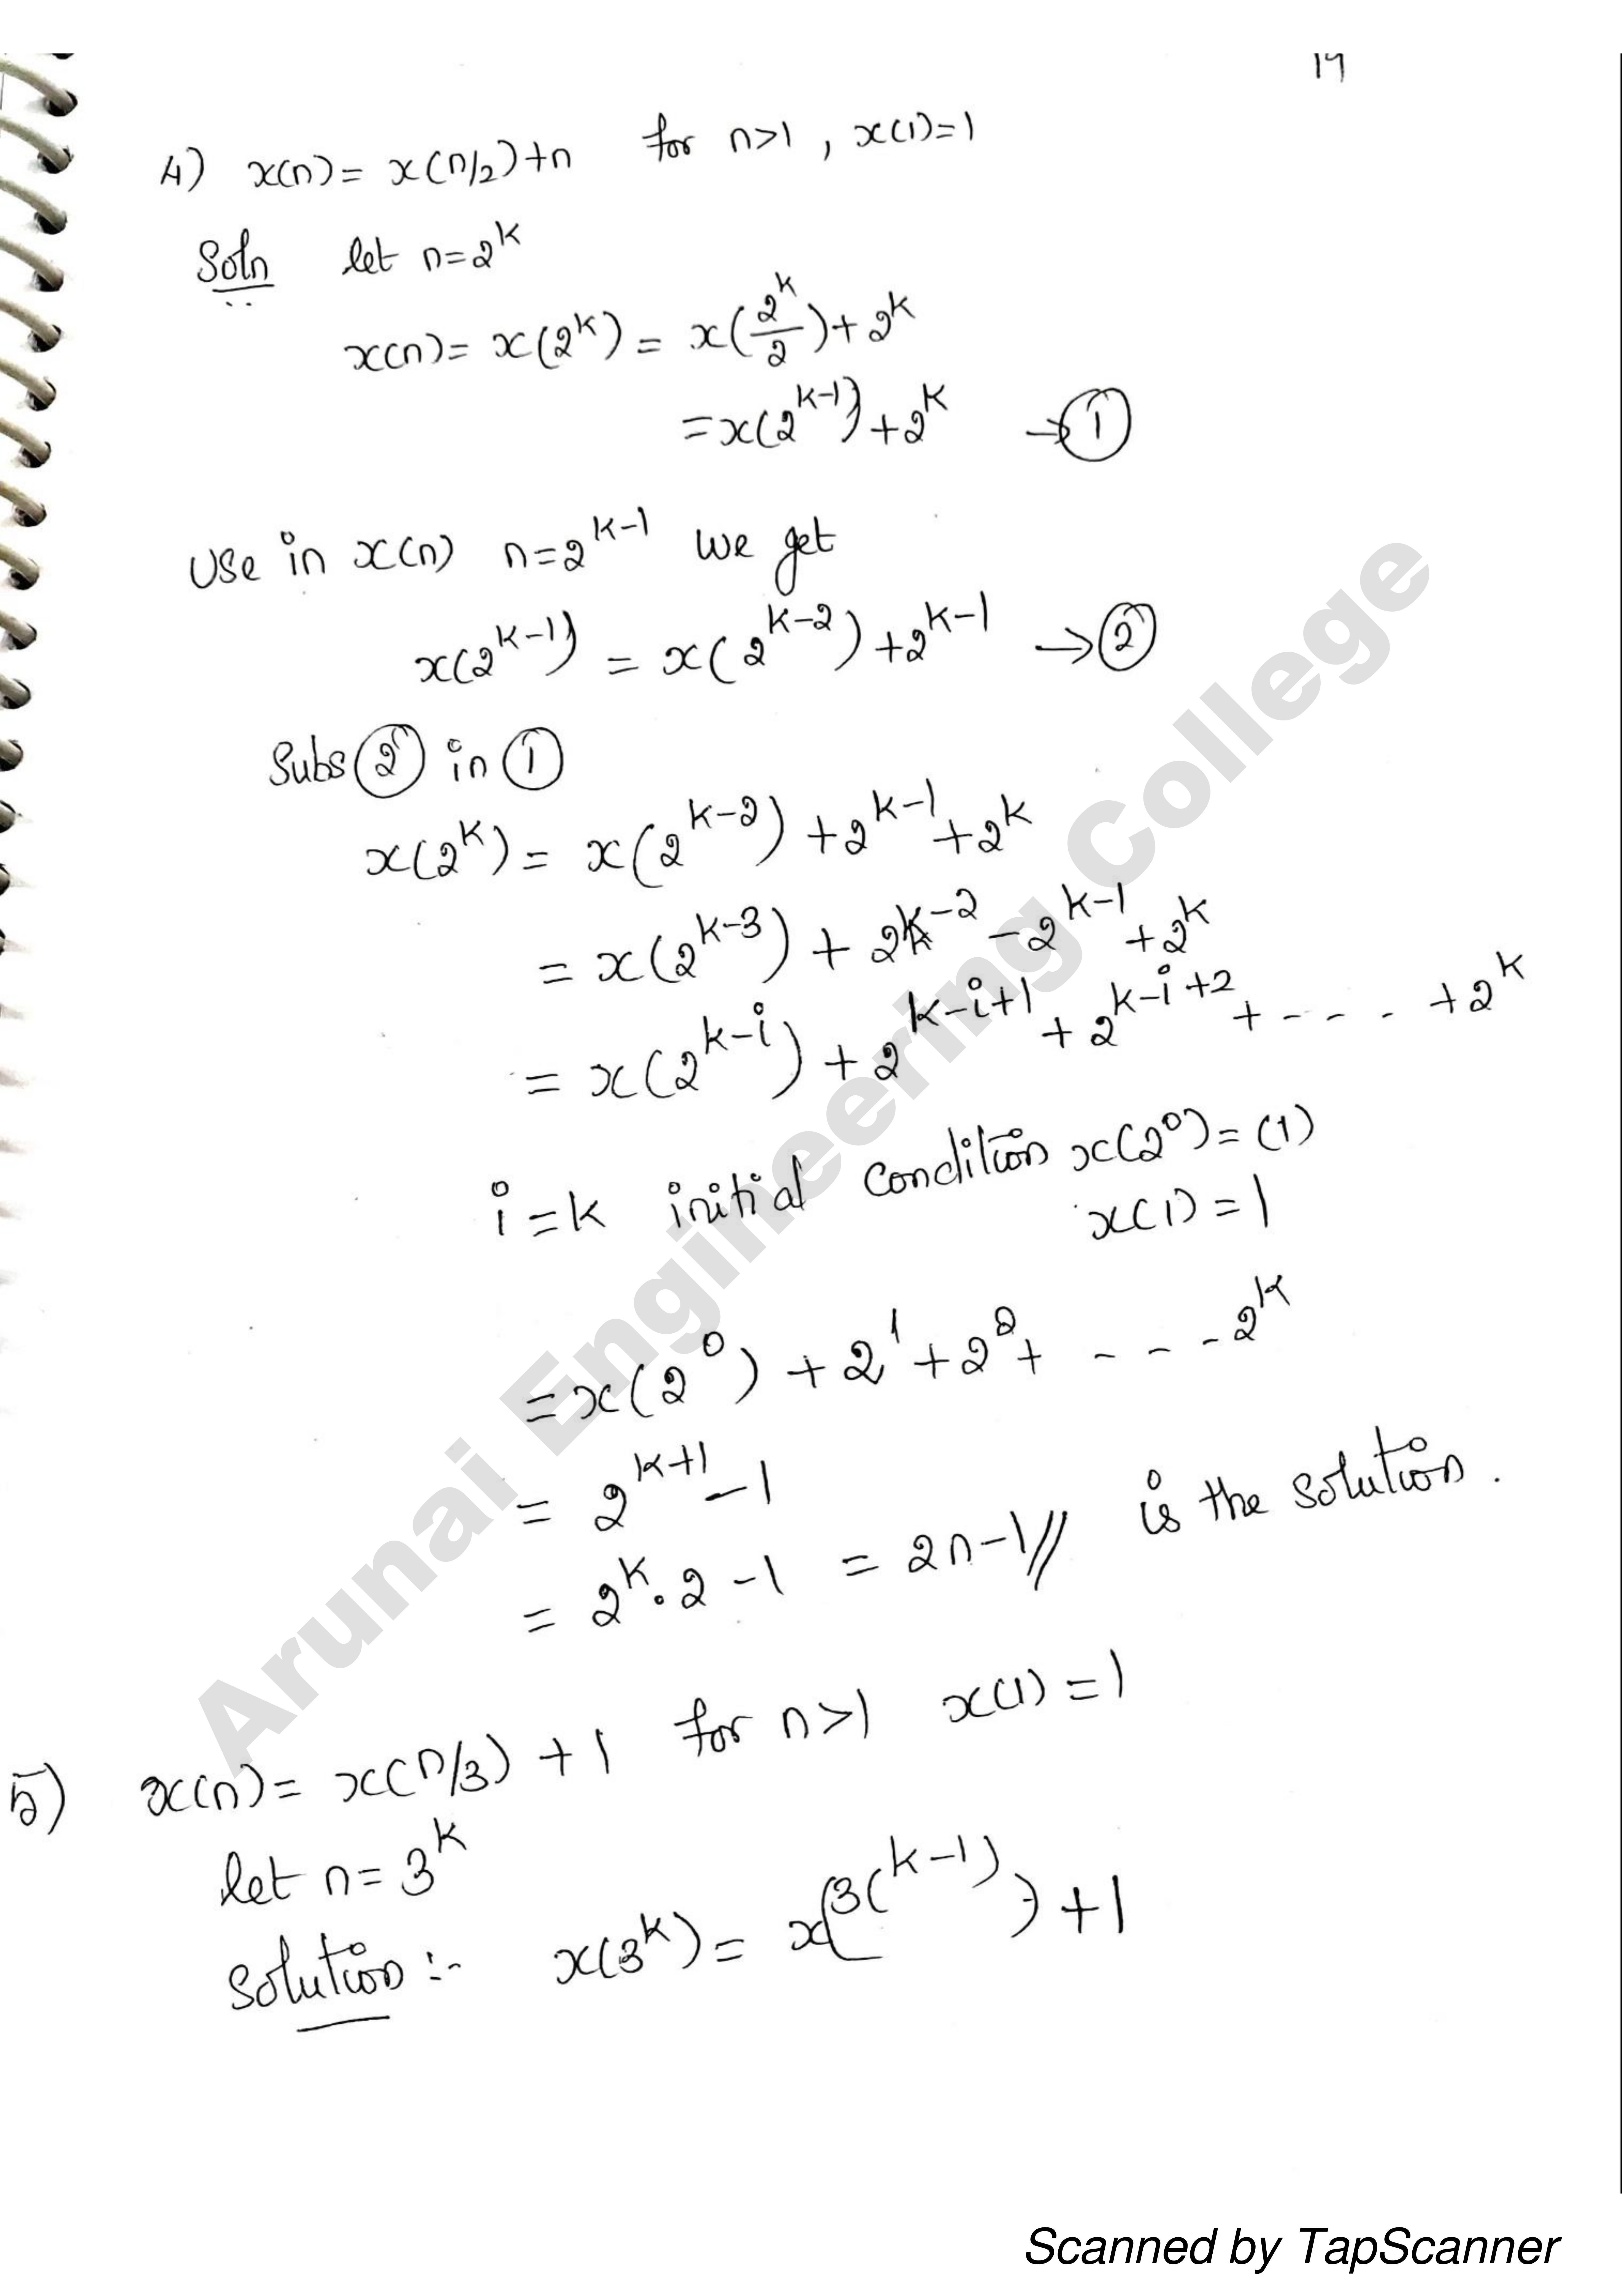 19
4) x(n) = x(n/2)+n for n>1 , x(1)=1
Soln let n=2^k
x(n) = x(2^k) = x(2^k/2) + 2^k
= x(2^(k-1)) + 2^k → ①
Use in x(n) n=2^(k-1) we get
x(2^(k-1)) = x(2^(k-2)) + 2^(k-1) → ②
Subs ② in ①
x(2^k) = x(2^(k-2)) + 2^(k-1) + 2^k
= x(2^(k-3)) + 2^(k-2) - 2^(k-1) + 2^k
= x(2^(k-i)) + 2^(k-i+1) + 2^(k-i+2) + - - - - + 2^k
i=k initial condition x(2^0) = (1)
x(1) = 1
= x(2^0) + 2^1 + 2^2 + - - - 2^k
= 2^(k+1) - 1
= 2^k . 2 - 1 = 2n-1// is the solution.
5) x(n) = x(n/3) + 1 for n>1 x(1) = 1
let n = 3^k
Solution :- x(3^k) = x(3^(k-1)) + 1
Arunai Engineering College
Scanned by TapScanner